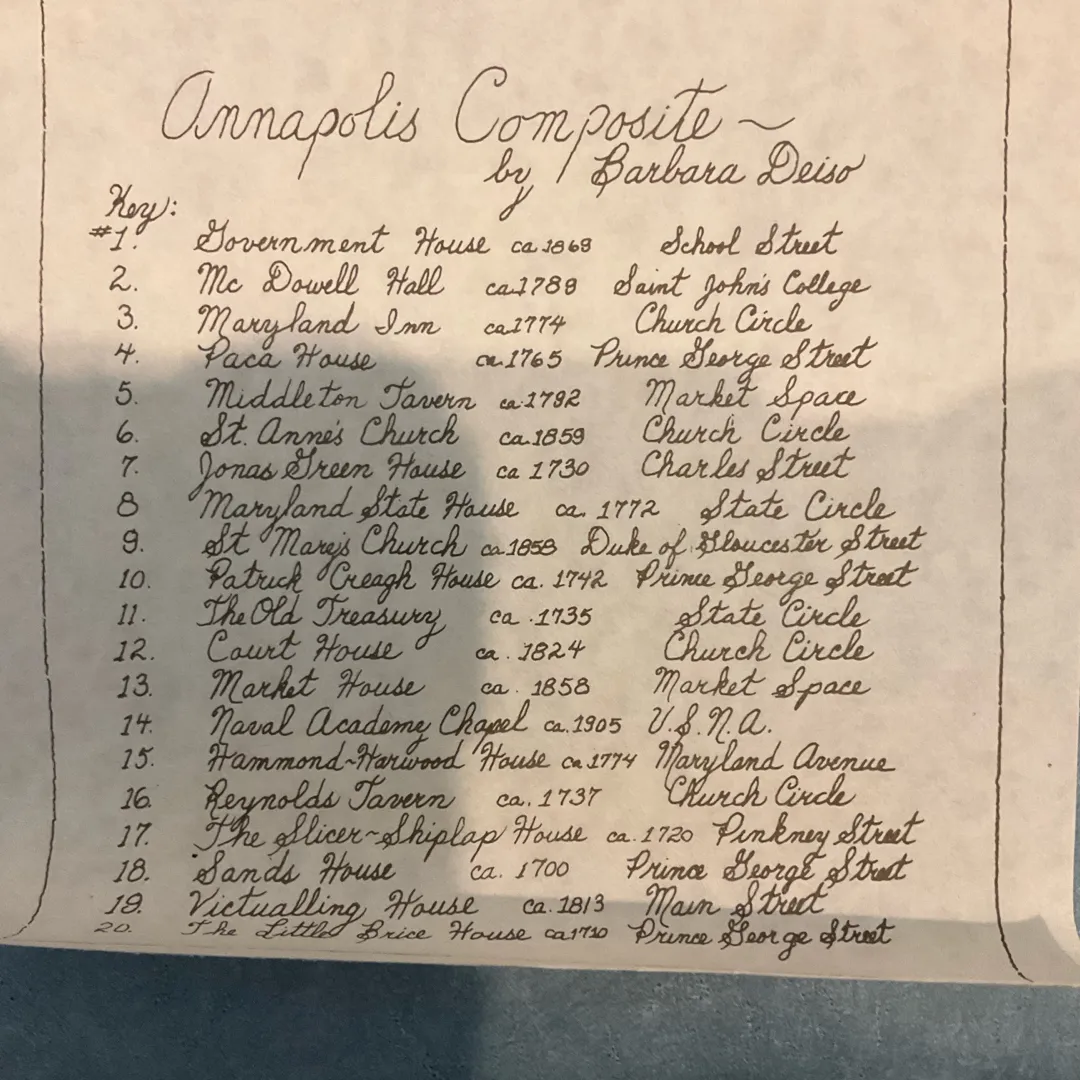 Annapolis Composite ~
by Barbara Deiso
Key:
#1. Government House ca 1868 School Street
2. Mc Dowell Hall ca.1788 Saint John's College
3. Maryland Inn ca.1774 Church Circle
4. Paca House ca.1765 Prince George Street
5. Middleton Tavern ca.1792 Market Space
6. St. Anne's Church ca.1859 Church Circle
7. Jonas Green House ca 1730 Charles Street
8 Maryland State House ca. 1772 State Circle
9. St Mary's Church ca.1858 Duke of Gloucester Street
10. Patrick Creagh House ca. 1742 Prince George Street
11. The Old Treasury ca. 1735 State Circle
12. Court House ca. 1824 Church Circle
13. Market House ca. 1858 Market Space
14. Naval Academy Chapel ca.1905 U.S.N.A.
15. Hammond~Harwood House ca 1774 Maryland Avenue
16. Reynolds Tavern ca. 1737 Church Circle
17. The Slicer~Shiplap House ca. 1720 Pinkney Street
18. Sands House ca. 1700 Prince George Street
19. Victualling House ca. 1813 Main Street
20. The Little Brice House ca1710 Prince George Street